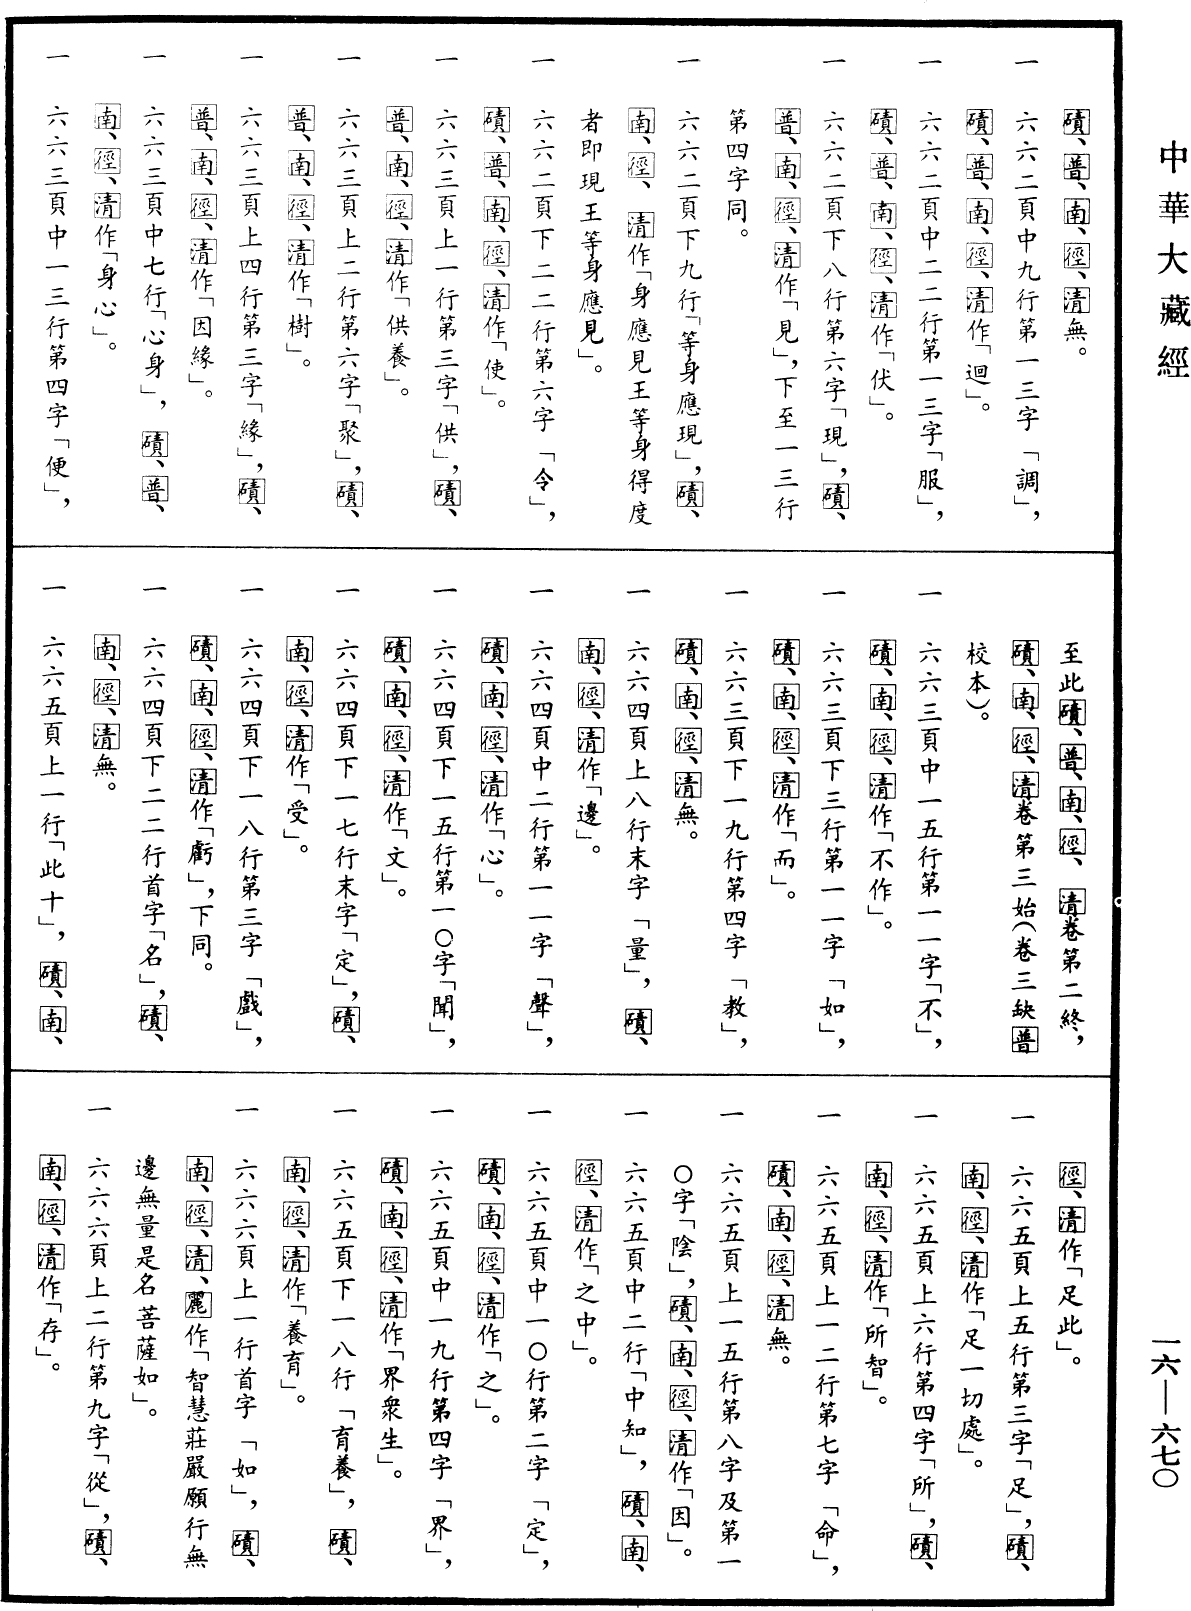 中華大藏經
磧、普、南、徑、清無。
一 六六二頁中九行第一三字「調」，
磧、普、南、徑、清作「迴」。
一 六六二頁中二二行第一三字「服」，
磧、普、南、徑、清作「伏」。
一 六六二頁下八行第六字「現」，磧、
普、南、徑、清作「見」，下至一三行
第四字同。
一 六六二頁下九行「等身應現」，磧、
南、徑、清作「身應見王等身得度
者即現王等身應見」。
一 六六二頁下二二行第六字「令」，
磧、普、南、徑、清作「使」。
一 六六三頁上一行第三字「供」，磧、
普、南、徑、清作「供養」。
一 六六三頁上二行第六字「聚」，磧、
普、南、徑、清作「樹」。
一 六六三頁上四行第三字「緣」，磧、
普、南、徑、清作「因緣」。
一 六六三頁中七行「心身」，磧、普、
南、徑、清作「身心」。
一 六六三頁中一三行第四字「便」，
至此磧、普、南、徑、清卷第二終，
磧、南、徑、清卷第三始（卷三缺普
校本）。
一 六六三頁中一五行第一一字「不」，
磧、南、徑、清作「不作」。
一 六六三頁下三行第一一字「如」，
磧、南、徑、清作「而」。
一 六六三頁下一九行第四字「教」，
磧、南、徑、清無。
一 六六四頁上八行末字「量」，磧、
南、徑、清作「邊」。
一 六六四頁中二行第一一字「聲」，
磧、南、徑、清作「心」。
一 六六四頁下一五行第一〇字「聞」，
磧、南、徑、清作「文」。
一 六六四頁下一七行末字「定」，磧、
南、徑、清作「受」。
一 六六四頁下一八行第三字「戲」，
磧、南、徑、清作「虧」，下同。
一 六六四頁下二二行首字「名」，磧、
南、徑、清無。
一 六六五頁上一行「此十」，磧、南、
徑、清作「足此」。
一 六六五頁上五行第三字「足」，磧、
南、徑、清作「足一切處」。
一 六六五頁上六行第四字「所」，磧、
南、徑、清作「所智」。
一 六六五頁上一二行第七字「命」，
磧、南、徑、清無。
一 六六五頁上一五行第八字及第一
〇字「陰」，磧、南、徑、清作「因」。
一 六六五頁中二行「中知」，磧、南、
徑、清作「之中」。
一 六六五頁中一〇行第二字「定」，
磧、南、徑、清作「之」。
一 六六五頁中一九行第四字「界」，
磧、南、徑、清作「界眾生」。
一 六六五頁下一八行「育養」，磧、
南、徑、清作「養育」。
一 六六六頁上一行首字「如」，磧、
南、徑、清、麗作「智慧莊嚴願行無
邊無量是名菩薩如」。
一 六六六頁上二行第九字「從」，磧、
南、徑、清作「存」。
一六—六七〇